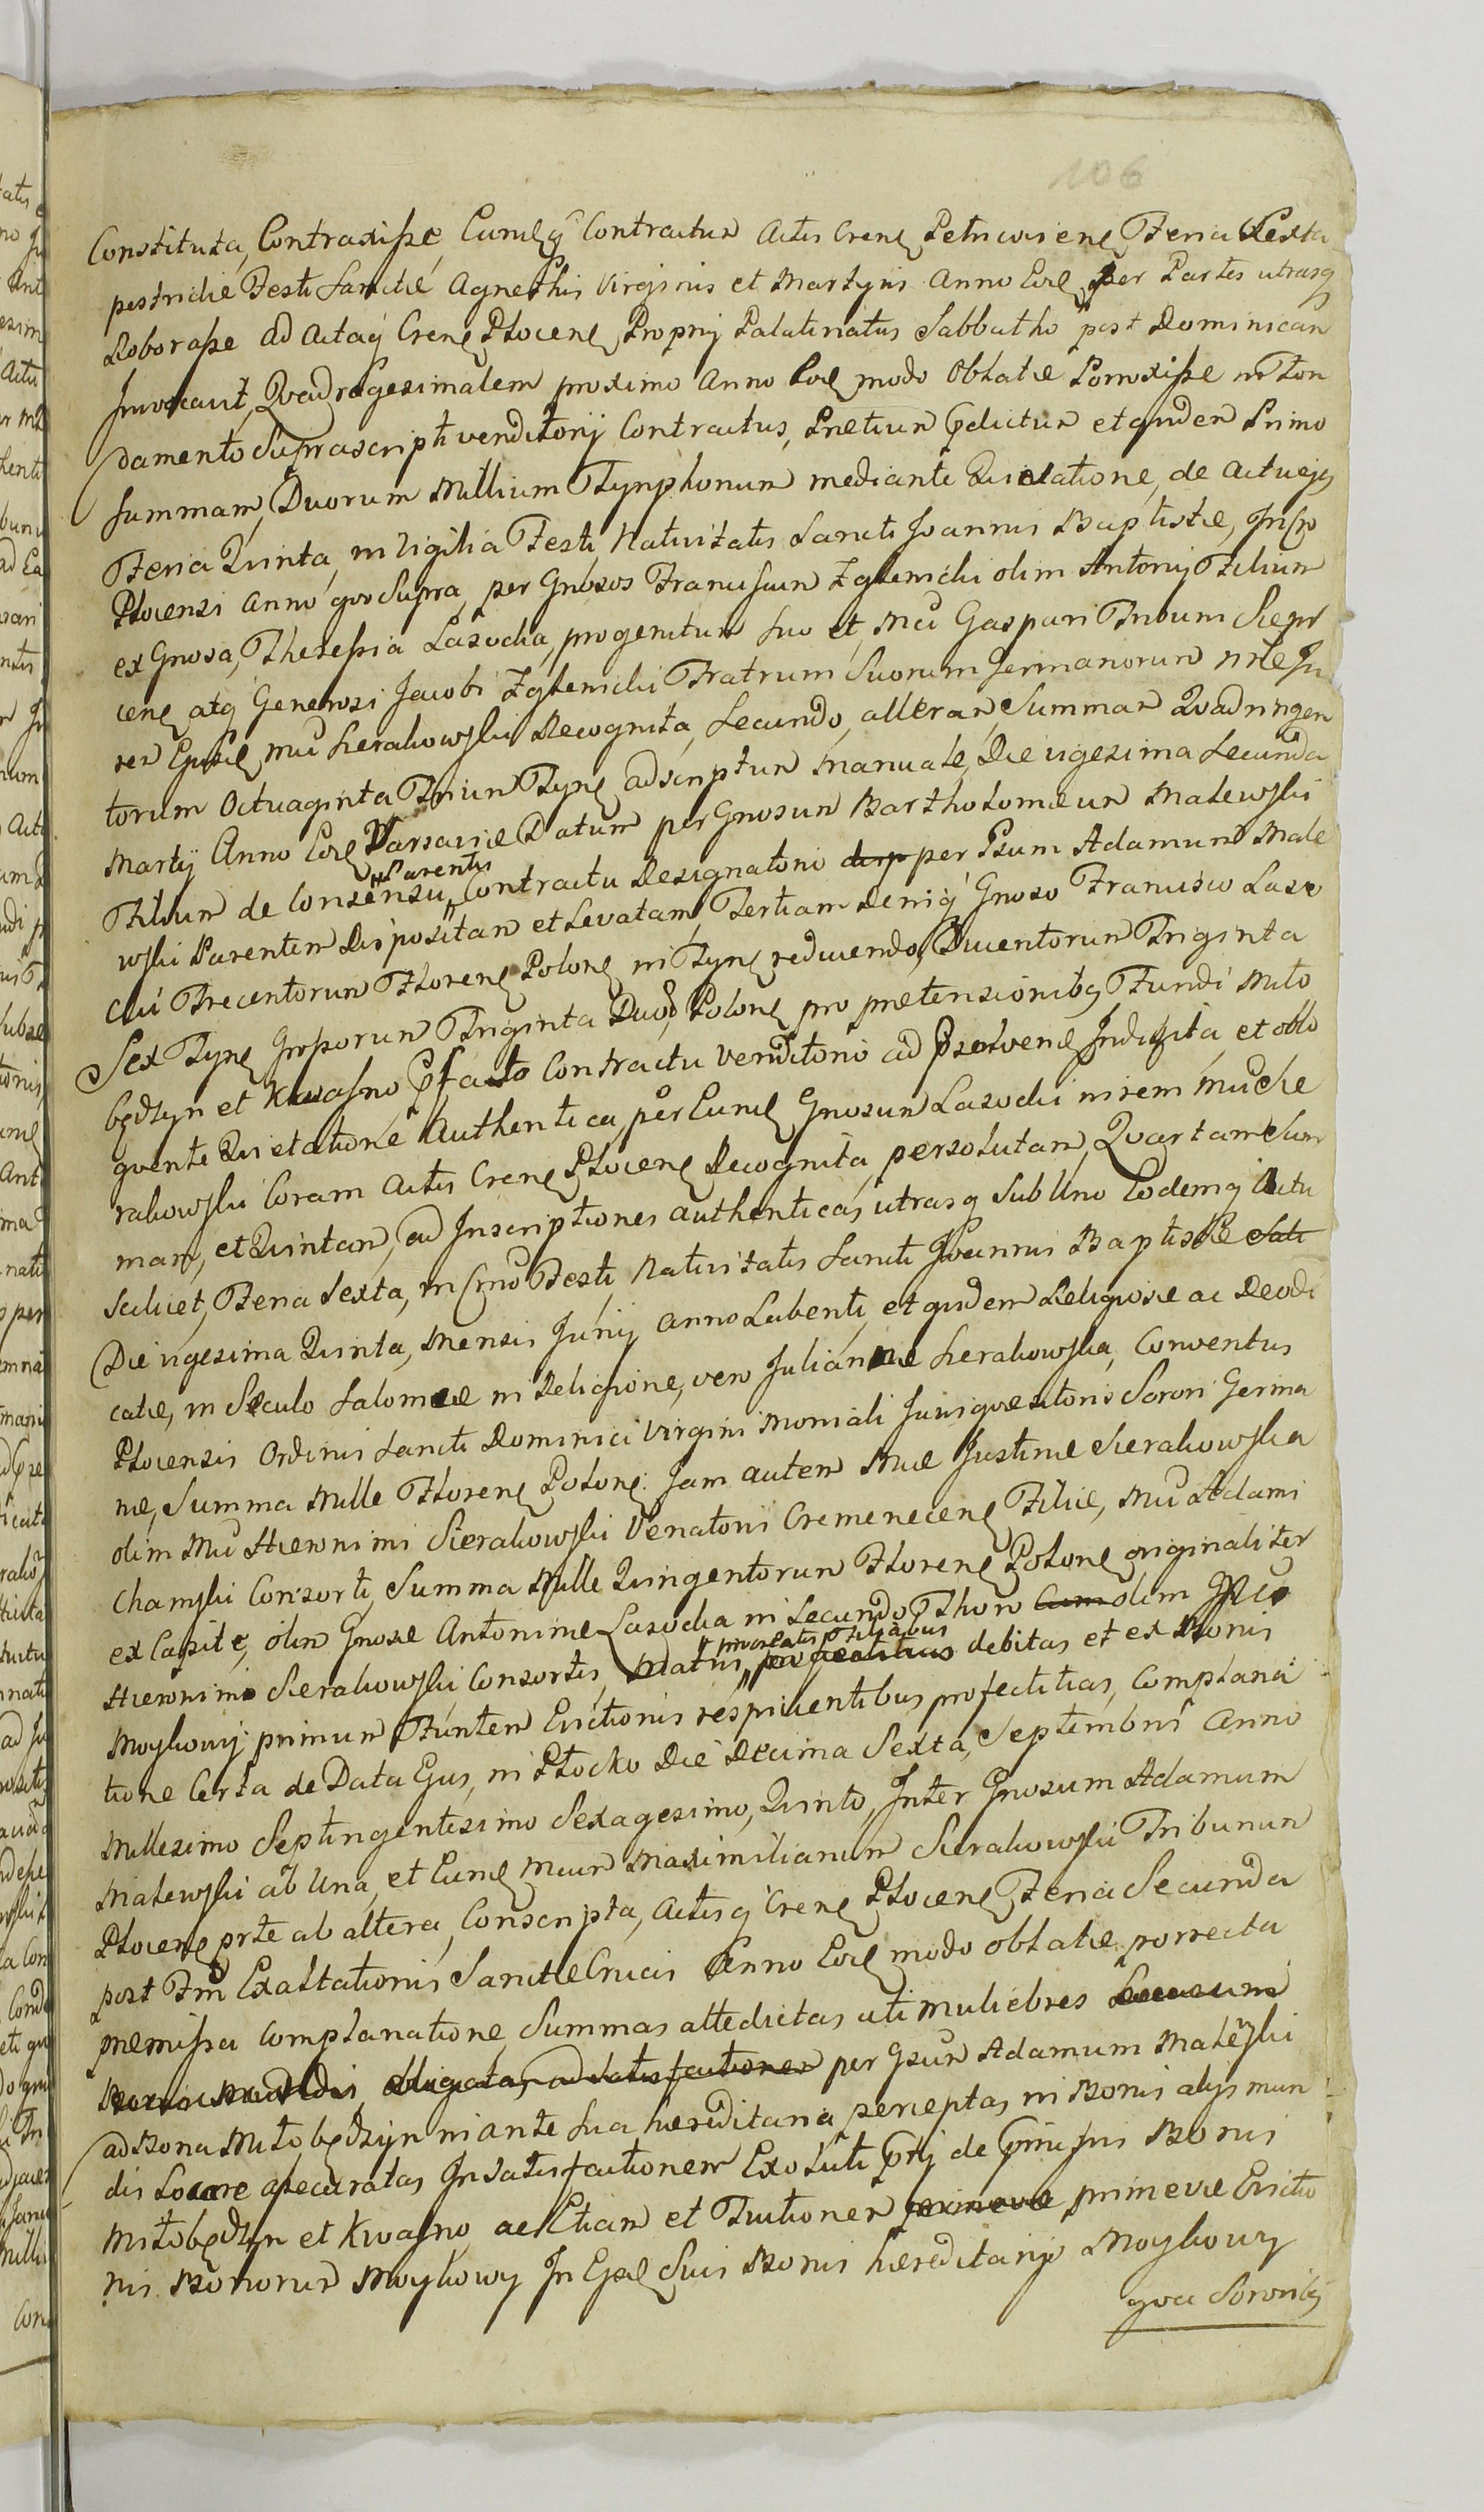 106
Constituta, Contraxiße, Eumq̃ Contractum Actis Cren Petricovien Feria Sexta
postridie Festi Sanctæ Agnethis Virginis et Martyris Anno Eod per Partes utrasq
Roboraße ad Actaq̃ Cren Plocen Proprij Palatinatus Sabbatho post Dominicam
Invocavit, Qvadragesimalem proximo Anno Eod modo Oblatæ Porrexiße in Fon
damento Suprascripti venditorij Contractus, Pretium pdictum et qvidem Primo
Summam, Duorum Millium Tynphonum mediante Qvietatione, de Actu ejq
Feria Qvinta, in Vigilia Festi Nativitatis Sancti Joannis Baptistæ, in Cro
Plocensi Anno qvo Supra, per Gnosos Franciscum Zglenicki olim Antonij Filium
ex Gnosa, Theressia Lasocka, progenitum suo et, Mci Gaspari Tribuni Sierp
cen atq̃ Generosi Jacobi Zglenicki Fratrum Suorum Germanorum nrĩe In
rem Ejusd Mci Sierakowski Recognita, Secundo, alteram Summam Qvadringen
torum Octuaginta Trium Tyn ad scriptum Manuale, Die vigesima Secunda
Martij Anno Eod Varsaviæ Datum per Gnosum Bartholomæum Malewski
Filium de Consensu Parentis Contractu Designatorio per Psum Adamum Male
wski Parentem Dispositam et Levatam, Tertiam Deniq̃ Gnoso Francisco Laso
cki Trecentorum Floren Polon in Tyn reducendo, Ducentorum Triginta
Sex Tyn Großorum Triginta Duor Polon pro prætensionibq Fundi Miło
będzyn et Kwasno Pfato Contractu Venditorio ad Psolven Indigita, et obło
qvente Qvietatione Authentica, per Eund Gnosum Lasocki in rem Mci Sie
rakowski Coram Actis Cren Plocen Recognita, persolutam, Qvartam Sum
mam, et Qvintam, ad Inscriptiones authenticas utrasq Sub Uno Eodemq̃ Actu
Scilicet, Feria Sexta, in Crno Festi, Nativitatis Sancti Joannis Baptistæ
Die vigesima Qvinta, Mensis Junij Anno Labenti, et qvidem Religiosæ ac Deodi
catæ, in Sæculo Salomeæ in Religione, vero Juliannæ Sierakowska, Conventus
Plocensis Ordinis Sancti Dominici Virgini Moniali Jurisqvæsitoris Sorori Germa
næ, Summa Mille Floren Polon: Jam autem Mcæ Justinæ Sierakowska
olim Mci Hieronimi Sierakowski Venatoris Cremenecen Filiæ, Mci Adami
Chamski Consorti, Summa Mille Qvingentorum Floren Polon originaliter
ex Capite, olim Gnosæ Antoninæ Lasocka in Secundo Thoro Cum olim
Hieronimi Sierakowski Consortis, Matris, debitas et ex Bonis
Moykowy primum Funtem Evictionis respicientibus profectitias, Complana
tione Certa de Data Ejus, in Płocko Die Decima Sexta, Septembris Anno
Millesimo Septingentesimo Sexagesimo, Qvinto, Inter Gnosum Adamum
Malewski ab Una, et Eund Mcum Maximilianum Sierakowski Tribunum
Plocen prte ab altera, Conscripta, Actisq̃ Cren Plocen Feria Secunda
post Ftm Exaltationis Sanctæ Crucis Anno Eod modo oblatæ porrecta
præmißa Complanatione, Summas attedictas uti muliebres
obligatas, ad Satisfactionem per Gsum Adamum Malewski
ad Bona Miłobędzyn in ante Sua hæreditaria perceptas, in Bonis alijs mun
dis Locare aßecuratas In Satisfactionem Exoluti Ptij de Pmißis Bonis
Miłobędzyn et Kwasno, ac Etiam et Tuitionem primevæ Evictio
nis Bonorum Moykowy In Ejsd Suis Bonis hæreditarijs Moykowy
qvæ Sororibq